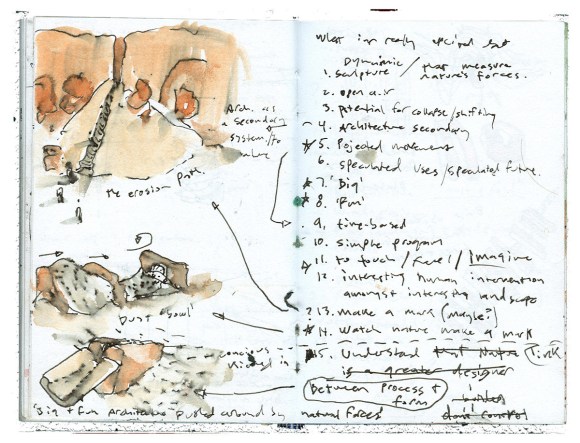 Arch. as
secondary
system/to
nature
the erosion path.
Dust bowl
'Big + Fun Architecture' pushed around by natural forces'
What i'm really excited
Dynamic
1. sculpture / that measure nature's forces.
2. open air
3. potential for collapse/shifting
4. Architecture secondary
5. Pojected movement
6. speculated uses/speculated future.
7. 'Big'
8. 'Fun'
9. time-based
10. simple program
11. to touch / feel / Imagine
12. interesting human intervention
amongst interesting landscape
13. make a mark (maybe?)
14. Watch nature make a mark
15. Understand that Nature Link
is a greater designer
between process +
form
don't control